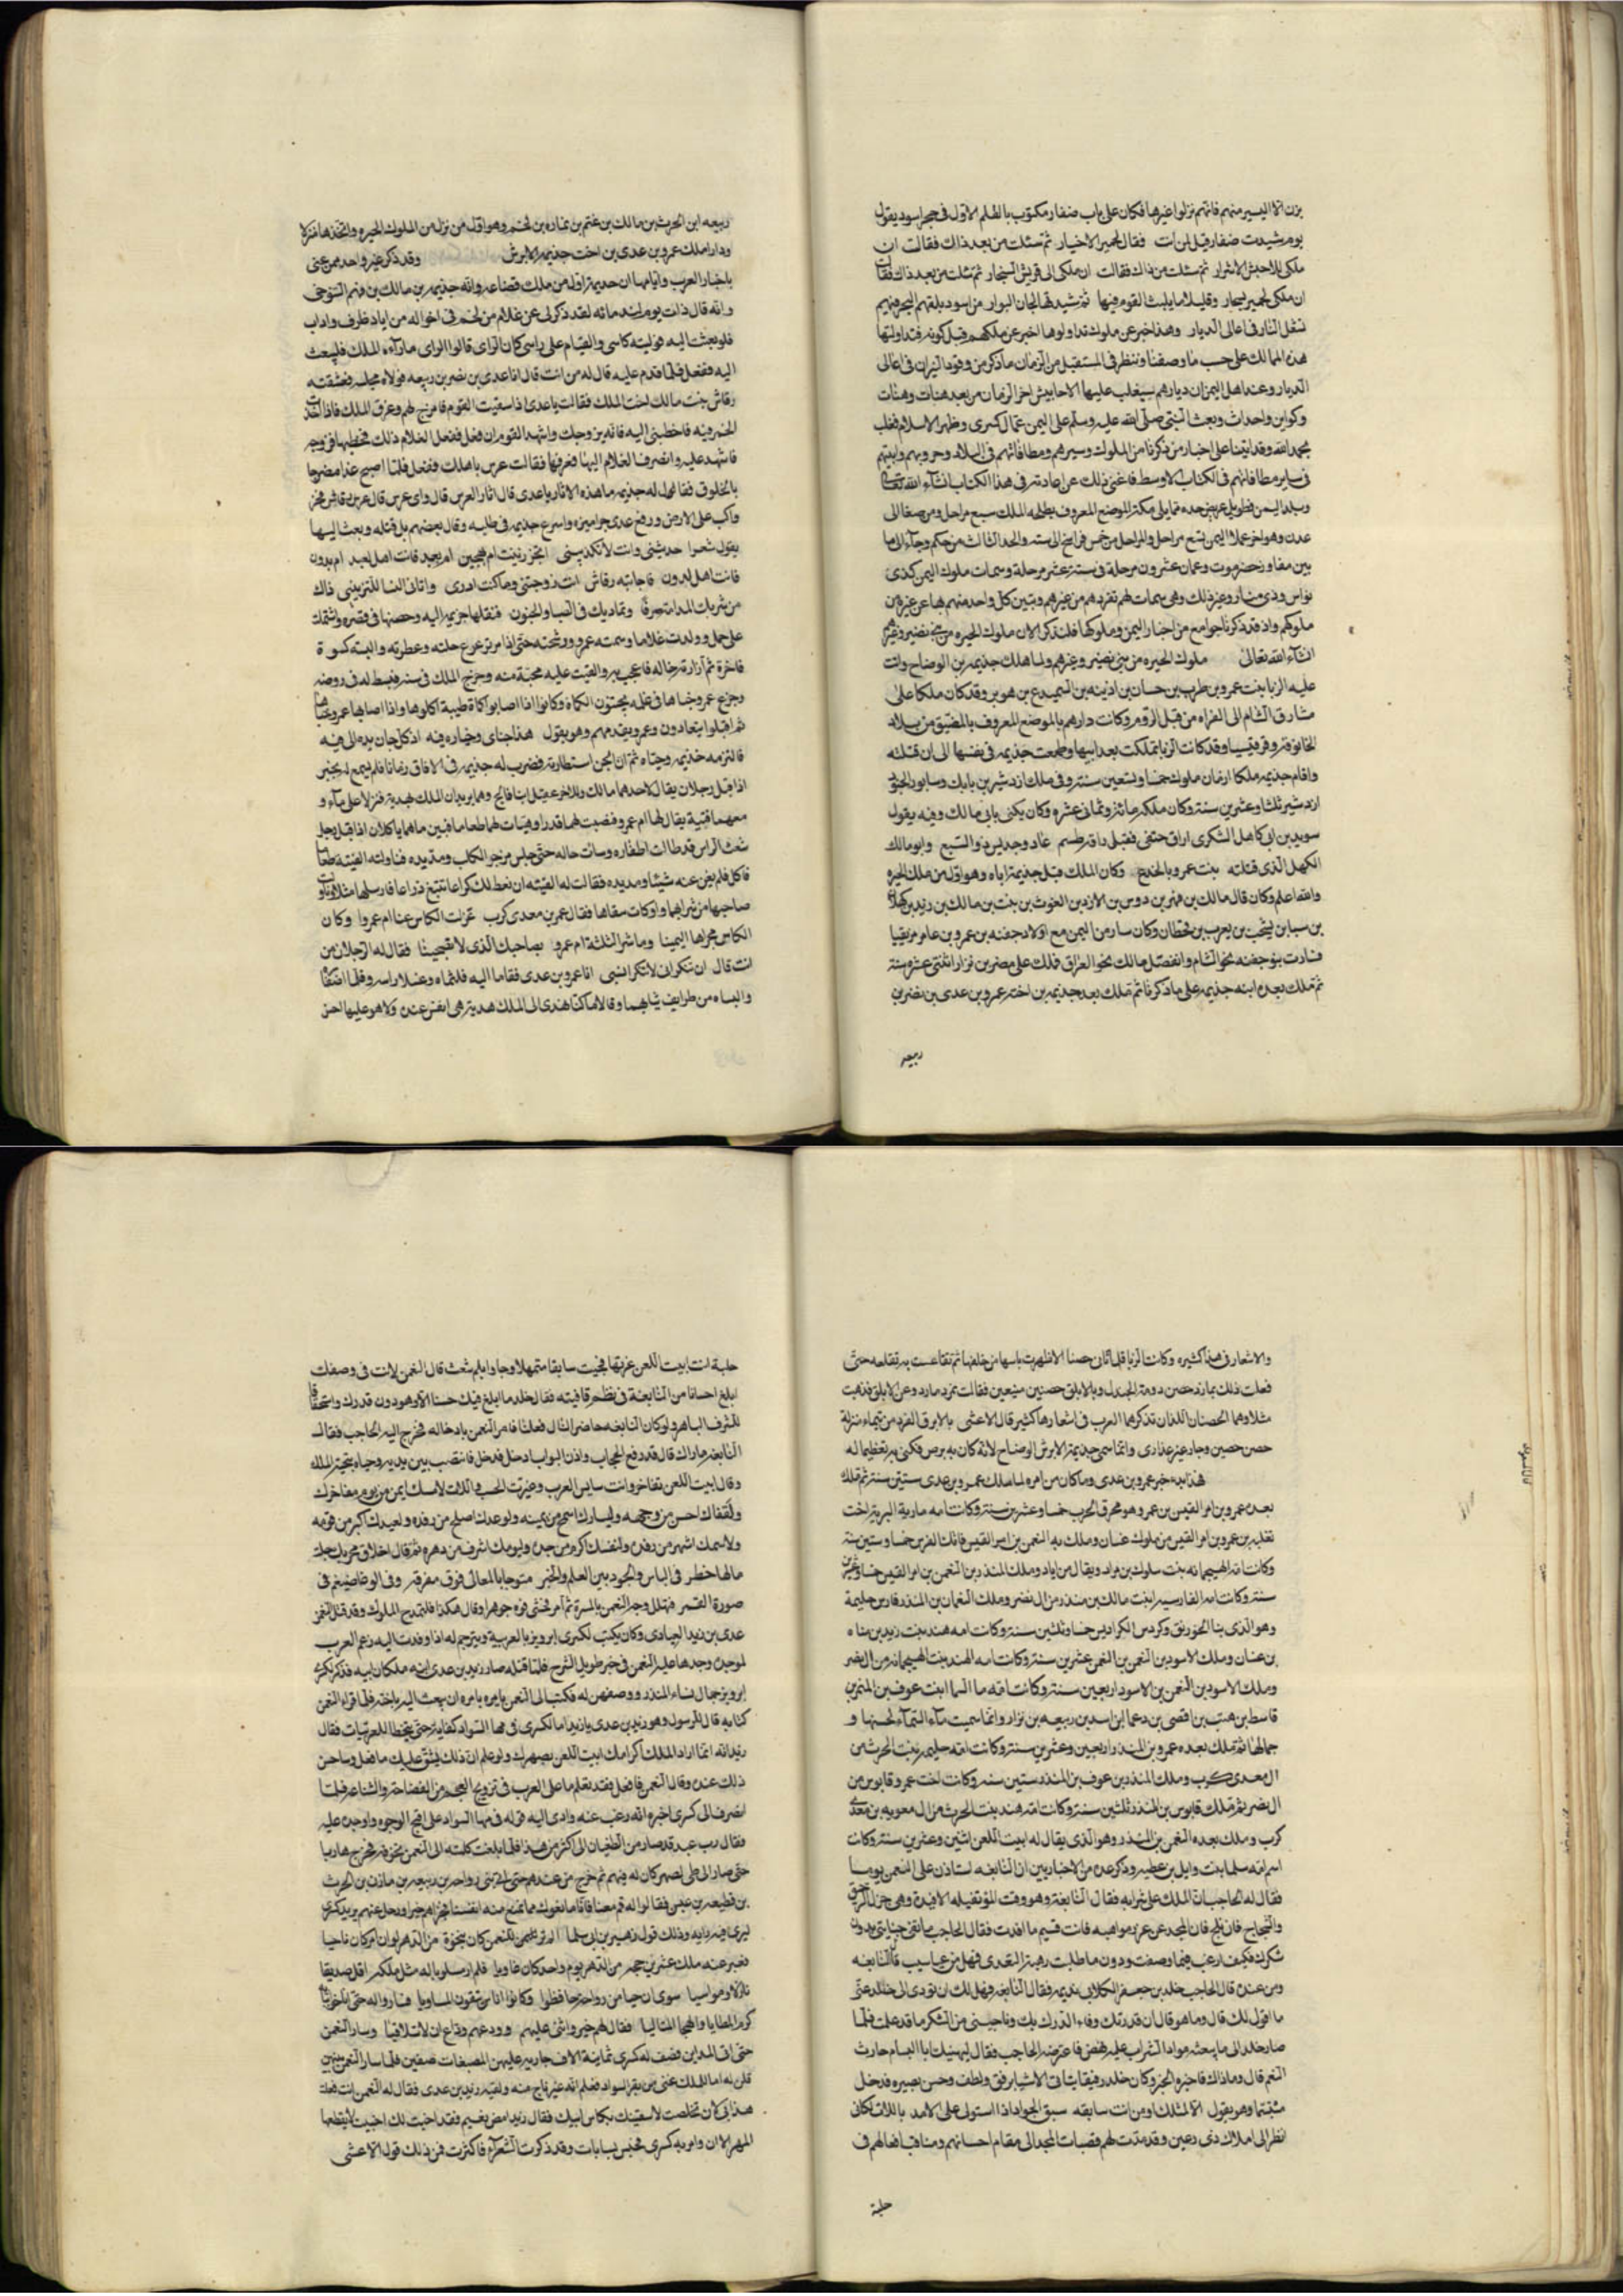 بزن الا اليسير منهم فانهم نزلوا غيرها فكان على باب ضفار مكتوب بالقلم الاول في حجر اسود يقول
يوم شيدت ضفار قيل لمن انت فقال لحمير الاخيار ثم سئلت من بعد ذاك فقالت ان
ملكي للاحبش الاشرار ثم سئلت من بعد ذاك فقالت ان ملكي الى قريش التجار ثم سئلت من بعد ذاك فقالت
ان ملكي لحمير سحار وقليلا ما يلبث القوم فيها مذ شيدتها لحان البوار من اسود يلقيهم البحر فيهم
تشعل النار في اعالى الديار وهذا خبر عن ملوك تداولوها اخبر عن ملكهم قبل كونه فتداولتها
هذه الممالك على حسب ما وصفنا وننظر في المستقبل من الزمان ما ذكر من وقود النيران في اعالى
الديار وعند اهل اليمن ان ديارهم سيغلب عليها الاحابيش اخر الزمان من بعد هنات وهنات
وكواين واحداث وبعث النبي صلى الله عليه وسلم على اليمن عمال كسرى وظهر الاسلام فغلب
بحمد الله وقد اتينا على اخبار من ذكرنا من الملوك وسيرهم ومطافاتهم في البلاد وحروبهم وابنيتهم
في ساير مطافاتهم في الكتاب الاوسط فاغنى ذلك عن اعادته في هذا الكتاب انشآء الله تعالى
وبلد اليمن طويل عريض حده مما يلي مكة الموضع المعروف بطلحة الملك سبع مراحل ومن صنعا الى
عدن وهو اخر عمل اليمن تسع مراحل والمراحل من خمس فراسخ الى سته والحد الثالث من حكم وجآء الى ما
بين مفاوز حضرموت وعمان عشرون مرحلة في ستة عشر مرحلة وسمات ملوك اليمن كذى
نواس وذى منار وغير ذلك وهي سمات لهم تفردهم من غيرهم وتبين كل واحد منهم بها عن غيره من
ملوكهم واذ قد ذكرنا جوامع من اخبار اليمن وملوكها فلنذكر الان ملوك الحيره من بنى نصير وغيرهم
انشآء الله تعالى ملوك الحيره من بنى نصير وغيرهم ولما هلك جذيمه بن الوضاح وانت
عليه الزبا بنت عمرو بن ظرب بن حسان بن اذينه بن السميدع بن هوبر وقد كان ملكا على
مشارق الشام الى الفراه من قبل الروم وكانت دارهم بالموضع المعروف بالمضيق من بلاد
الخانوقه وقرقيسيا وقد كانت الزبا تملكت بعد ابيها وطمعت جذيمه في نفسها الى ان قتلته
واقام جذيمه ملكا ازمان ملوك خمسا وتسعين سنة وفي ملك ازدشير بن بابك وسابور الجنود
ازدشير ثلثا وعشرين سنة وكان ملكه مائة وثمانى عشره وكان يكنى بابى مالك وفيه يقول
سويد بن ابى كاهل الشكرى اراق حتفى فقبل ذاقه طسم عاد وجديس ذو التسبع وابو مالك
الكهل الذى قتلته بنت عمرو بالخدع وكان الملك قبل جذيمة اباه وهو اول من ملك الحيره
والله اعلم وكان قال مالك بن فهر بن دوس بن الازد بن الغوث بن بنت بن مالك بن زيد بن كهلان
بن سبا بن يشجب بن يعرب بن قحطان وكان سار من اليمن مع اولاد جفنه بن عمرو بن عامر مزيقيا
فسارت بنو جفنه نحو الشام وانفصل مالك نحو العراق فملك على مضر بن نزار اثنتى عشره سنة
ثم ملك بعده ابنه جذيمه على ما ذكرنا ثم ملك بعد جذيمه بن اخته عمرو بن عدى بن نضر بن
ربيعه
ربيعه ابن الحرث بن مالك بن غنم بن نماره بن لخم وهو اول من نزل من الملوك الحيره واتخذها منزلا
ودار املك عمرو بن عدى بن اخت جذيمه الابرش وقد ذكر غير واحد ممن عنى
باخبار العرب وايامها ان جذيمة اول من ملك قضاعه وانه جذيمه بن مالك بن فهم التنوخى
وانه قال ذات يوم لندمائه لقد ذكر لى عن غلام من لخم في اخواله من اياد ظرف واداب
فلو بعثت اليه فوليته كاسى والقيام على راسى كان الراى قالوا الراى ما رآه الملك فليبعث
اليه ففعل فلما قدم عليه قال له من انت قال انا عدى بن نضر بن ربيعه فولاه مجلسه فعشقته
رقاش بنت مالك اخت الملك فقالت يا عدى اذا سقيت القوم فامزج لهم وعرق الملك فاذا اخذت
الخمر فيه فاخطبنى اليه فانه يزوجك واشهد القوم ان فعل ففعل الغلام ذلك فخطبها فزوجه
فاشهد عليه وانصرف الغلام اليها فعرفها فقالت عرس باهلك ففعل فلما اصبح غدا مضرجا
بالخلوق فقال له جذيمه ما هذه الاثار يا عدى قال اثار العرس قال واى عرس قال عرس رقاش فخر
واكب على الارض ورفع عدى جراميزه واسرع جذيمه في طلبه وقال بعضهم بل قتله وبعث اليها
يقول شعرا حدثينى وانت لا تكذبينى ابحر زنيت ام بهجين ام بعبد فانت اهل لعبد ام بدون
فانت اهل لدون فاجابته رقاش انت زوجتنى وما كنت ادرى واتانى النسا للتزيينى ذاك
من شربك المدامة صرفا وتماديك في الصبا والجنون فنقلها جذيمه اليه وحصنها في قصره واشتملت
على حمل وولدت غلاما وسمته عمرو ورشحته حتى اذا ترعرع حلته وعطرته والبسته كسوة
فاخرة ثم ازارته خاله فاعجب به والقيت عليه محبة منه وخرج الملك في سنة فبسط له في روضه
وخرج عمرو في غلمه يجتنون الكماة وكانوا اذا اصابوا كماة طيبة اكلوها واذا اصابها عمرو خباها
ثم اقبلوا يتعادون وعمرو يقدمهم وهو يقول هذا جناى وخياره فيه اذ كل جان يده الى فيه
فالتزمه جذيمه وحباه ثم ان الجن استطارته فضرب له جذيمه في الافاق زمانا فلم يسمع له بخبر
اذ اقبل رجلان يقال لاحدهما مالك وللاخر عقيل ابنا فالج وهما يريدان الملك بهدية فنزلا على مآء و
معهما قينة يقال لها ام عمرو فنصبت لهما قدرا وهيات لهما طعاما فبين ما هما ياكلان اذ اقبل رجل
شعث الراس قد طالت اظفاره وسات حاله حتى جلس مزجر الكلاب ومد يده فناولته القينه طعاما
فاكل فلم يغن عنه شيئا ومد يده فقالت له القينه ان نعط لك كراعا تبتغ ذراعا فارسلها مثلا وناولت
صاحبها من شرابها واوكات سقاها فقال عمر بن معدى كرب عزلت الكاس عنا ام عمروا وكان
الكاس مجراها اليمينا وما شر الثلثة ام عمرو بصاحبك الذى لا تصبحينا فقال له الرجلان من
انت قال ان تنكران لا تنكرا نسبى انا عمرو بن عدى فقاما اليه فلثماه وغسلا راسه وقلما اظفاره
والبساه من طرايف ثيابهما وقالا ما كنا نهدى الى الملك هدية هى انفس عنده ولا هو عليها احسن
والاشعار في هذا كثيره وكانت الزبا قلما تاتى حصنا الا ظهرت باسها من خلفها ثم تقاعست به تقلعه حتى
فعلت ذلك بمارد حصن دومة الجندل وبالابلق حصنين منيعين فقالت تمرد مارد وعز الابلق فذهبت
مثلا وهما الحصنان اللذان تذكرهما العرب في اشعارها كثير قال الاعشى بالابرق الفرد من تيماء منزلة
حصن حصين وجار غير غدار وانما سمى جذيمة الابرش الوضاح لانه كان به برص فكنى به تعظيما له
فهذا بدء خبر عمرو بن عدى وما كان من امره لما ملك عمرو بن عدى ستين سنة ثم ملك
بعده عمرو بن امر القيس بن عمرو وهو محرق الحرب خمسا وعشرين سنة وكانت امه مارية البرية اخت
ثعلبه بن عمرو بن امر القيس من ملوك غسان وملك بعده النعمن بن امر القيس قاتل الفرس خمسا وستين سنة
وكانت امه الهيجمانه بنت سلوك بن مراد ويقال من اياد وملك المنذر بن النعمن بن امر القيس خمسا وعشرين
سنة وكانت امه الفارسيه ابنت مالك بن منذر من ال نضر وملك النعمان بن المنذر فارس حليمة
وهو الذى بنا الخورنق وكردس الكراديس خمسا وثلثين سنة وكانت امه هند بنت زيد بن مناه
بن غسان وملك الاسود بن النعمن بن النعمن عشرين سنة وكانت امه الهند بنت الهيجمانه من ال نضر
وملك الاسود بن النعمن بن الاسود اربعين سنة وكانت امه ما السما ابنت عوف بن النمر بن
قاسط بن هنب بن افصى بن دعما ابن اسد بن ربيعه بن نزار وانما سميت مآء السمآء لحسنها و
جمالها ثم ملك بعده عمرو بن المنذر اربعين وعشرين سنة وكانت امه حليمه بنت الحرث من
ال معدى كرب وملك المنذر بن عوف بن المنذر ستين سنه وكانت اخت عمرو قابوس من
ال نضر ثم ملك قابوس بن المنذر ثلثين سنة وكانت امه هند بنت الحرث من ال معويه بن معدى
كرب وملك بعده النعمن بن المنذر وهو الذى يقال له ابيت اللعن اثنين وعشرين سنة وكانت
اسم امه سلما بنت وايل بن عطيه وذكر عده من الاخباريين ان النابغه استاذن على النعمن يوما
فقال له الحاجب ان الملك على شرابه فقال النابغة وهو وقت الموتقبله الافيدة وهى جزل الرحيق
شكرك فكيف ارغب فيما وصفت ودون ما طلبت رهبة التعدى فهل من سبب قال النابغه
ومن عنده قال الحاجب خلد بن جعفر الكلابى نديمه فقال النابغه فهل لك ان تودى الى خلد عنى
ما اقول لك قال وما هو قال ان قدرتك وفاء الدرك بك وناحيتى من الشكر ما قد علمت فلما
صار خلد الى ما يبعثه مواد الشراب عليه نهض فاعترضه الحاجب فقال ليهنيك ابا البسام حارث
النعم قال وما ذاك فاخبره الخبر وكان خلد رفيقا ياتى الاشيا برفق ولطف وحسن بصيره فدخل
مبتسما وهو يقول الا لمثلك او من انت سابقه سبق الجواد اذا استولى على الامد باللات لكانى
انظر الى املاك ذى رعين وقد مدت لهم قصبات المجد الى مقام احسابهم ومناقب افعالهم في
حلبة
حلبة انت ابيت اللعن غرتها فجيت سابقا متمهلا وجاوا لم شعث قال النعمن لانت في وصفك
ابلغ احسانا من النابغة في نظم قافيته فقال خلد ما ابلغ فيك حسنا الا وهو دون قدرك واستحقاقا
للشرف الباهر ولو كان النابغه حاضرا لقال فقلنا فامر النعمن بادخاله فخرج اليه الحاجب فقال له
النابغة ما وراك قال قد رفع الحجاب واذن الباب ادخل فدخل فانتصب بين يديه وحياه بتحية الملك
وقال ابيت اللعن تفاخر وانت سايس العرب وغرة الحسب واللات لامسك ايمن من يومه مفاخرك
ولقفاك احسن من وجهه وليسارك اسمح من يمينه ولوعدك اصلح من رفده ولعبيدك اكبر من قومه
ولاسمك اشهر من رفده ولنفسك اكرم من جده وليومك اشرف من دهره ثم قال اخلاق مجدك جلت
مالها خطر في الباس والجود بين العلم والخبر متوجا بالمعالى فوق مفرقه وفي الوغا ضيغم في
صورة القمر فتهلل وجه النعمن بالمسرة ثم امر فحشى فوه جوهرا وقال هكذا فلتمدح الملوك وقد قتل النعمن
عدى بن زيد العبادى وكان يكتب لكسرى ابرويز بالعربية ويترجم له اذا وفدت اليه زعم العرب
لموجدة وجدها عليه النعمن في خبر طويل الشرح فلما قتله صار زيد بن عدى ابنه مكان ابيه فذكر لكسرى
ابرويز جمال نساء المنذر ووصفهن له فكتب الى النعمن يامره ان يبعث اليه باخته فلما قراء النعمن
كتابه قال للرسول وهو زيد بن عدى يا زيد اما لكسرى في مها السواد كفاية حتى يتخطا للعربيات فقال
زيد انه انما اراد الملك اكرامك ابيت اللعن بصهرك ولو علم ان ذلك يشق عليك ما فعل وساحسن
ذلك عنده وقال النعمن فافعل فقد تعلم ما على العرب في تزويج العجم من الغضاضة والشناعه فلما
انصرف الى كسرى اخبره انه رغب عنه وادى اليه قوله في مها السواد على اقبح الوجوه واوجده عليه
فقال رب عبد قد صار من الطغيان الى اكثر من هذا فلما بلغت كلمته الى النعمن تخوفه فخرج هاربا
حتى صار الى طى لصهر كان له فيهم ثم خرج من عندهم حتى اتى بنى رواحه بن ربيعه بن مازن بن الحرث
بن قطيعه بن عبس فقالوا له قم معنا فانا مانعوك مما نمنع منه انفسنا فجزاهم خيرا ورحل عنهم يريد كسرى
ليرى فيه رايه وذلك قول زهير بن ابى سلما الم تر للنعمن كان بنجوة من الدهر لو ان امر كان ناجيا
فغير عنه ملك عشرين حجه من الدهر يوم واحد كان غاويا فلم ار مسلوبا له مثل ملكه اقل صديقا
باذلا ومواسيا سوى ان حيا من رواحة حافظوا وكانوا اناسا يتقون المساويا فساروا له حتى
كرم المطايا والهجا المتاليا فقال لهم خير واثنى عليهم وودعهم وداع ان لا تلاقيا وسار النعمن
حتى اتى المداين فصف له كسرى ثمانية الاف جاريه عليهن المصبغات صفين فلما سار النعمن بينهن
قلن له اما للملك غنى عن بقر السواد فعلم انه غير ناج منه ولقيه زيد بن عدى فقال له النعمن انت فعلت
هذا بى لان تخلصت لاسقينك بكاس ابيك فقال زيد امض نعيم فقد اخيت لك اخية لا يقطعها
المهر الارن وامر به كسرى فحبس بساباط وقد ذكرت الشعرآء فاكثرت فمن ذلك قول الاعشى